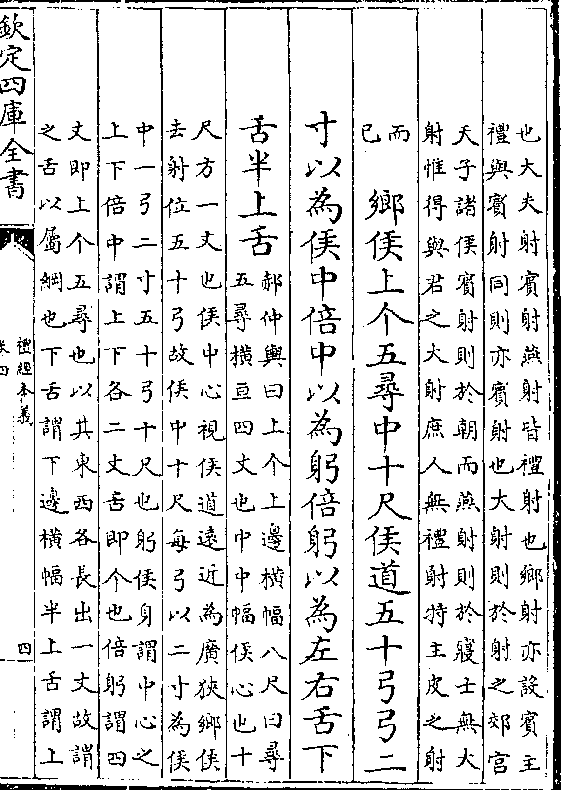 也大夫射賓射燕射皆禮射也鄉射亦設賓主
禮與賓射同則亦賓射也大射則於射之郊宮
天子諸侯賓射則於朝而燕射則於寢士無大
射惟得與君之大射庶人無禮射特主皮之射
而
已
鄉侯上个五尋中十尺侯道五十弓弓二
寸以為侯中倍中以為躬倍躬以為左右舌下
舌半上舌
郝仲輿曰上个上邊橫幅八尺曰尋
五尋橫亘四丈也中中幅侯心也十
尺方一丈也侯中心視侯道遠近為廣狹鄉侯
去射位五十弓故侯中十尺每弓以二寸為侯
中一弓二寸五十弓十尺也躬侯身謂中心之
上下倍中謂上下各二丈舌即个也倍躬謂四
丈即上个五尋也以其東西各長出一丈故謂
之舌以屬綱也下舌謂下邊橫幅半上舌謂上
欽定四庫全書
禮經本義
四